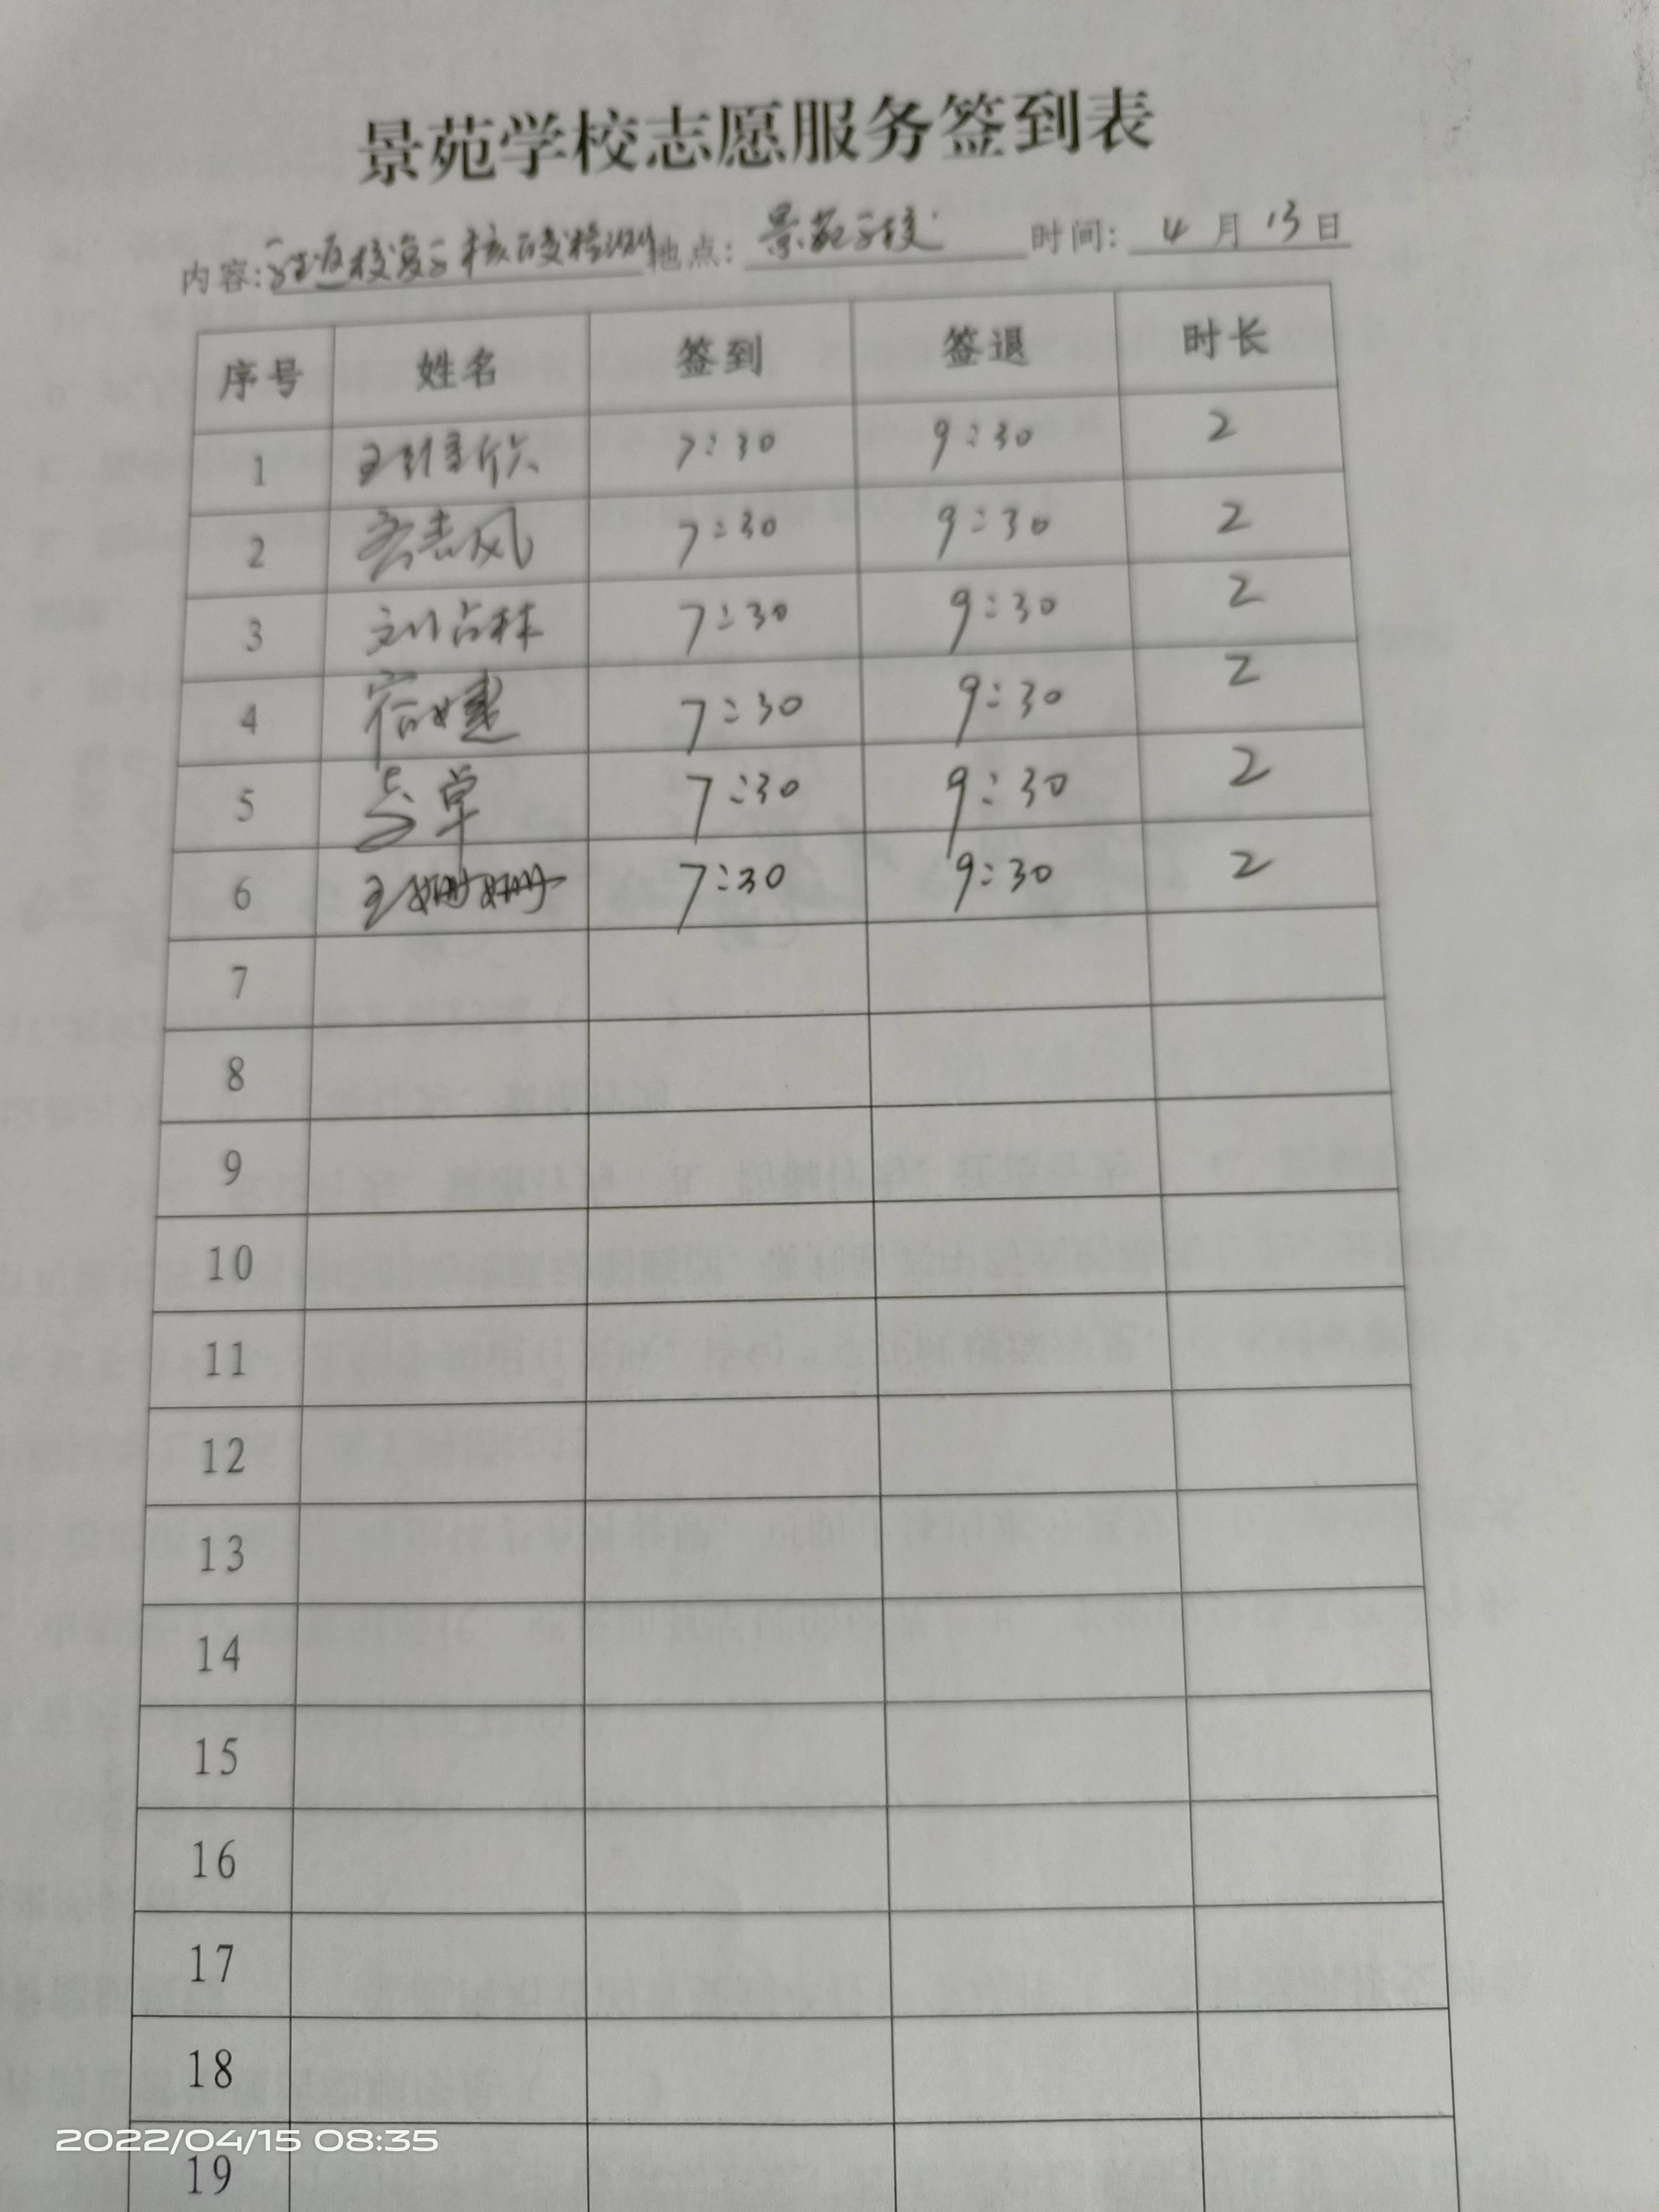 景苑学校志愿服务签到表
内容:学生返校复学核酸检测 地点: 景苑学校 时间: 4月13日
序号 姓名 签到 签退 时长
1 7:30 9:30 2
2 7:30 9:30 2
3 刘占林 7:30 9:30 2
4 7:30 9:30 2
5 卓 7:30 9:30 2
6 王姗姗 7:30 9:30 2
7
8
9
10
11
12
13
14
15
16
17
18
2022/04/15 08:35
19